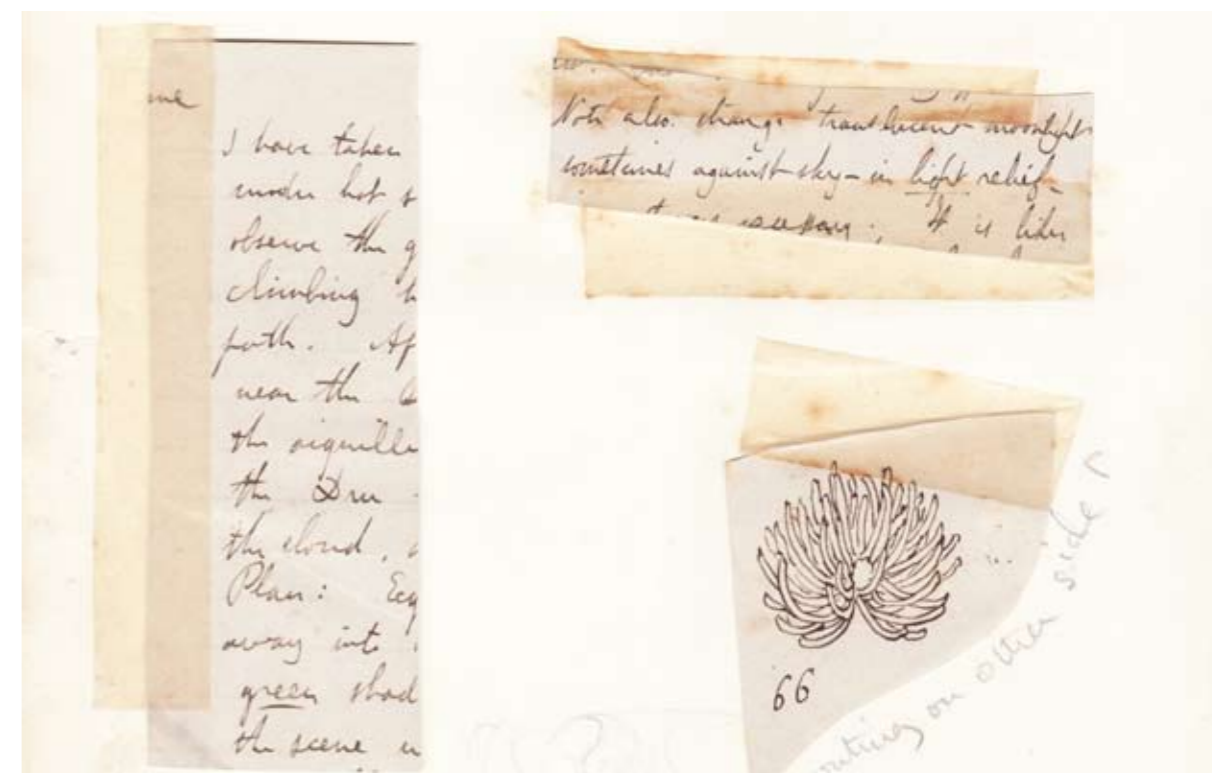 me
I have taken
observe the g
climbing
path. Af
near the
the aiguille
the Dru
the cloud,
Plan:
away into
green shad
the scene
Note also. strange translucent moonlight
sometimes against sky - in light relief-
It is like
66
writing on other side